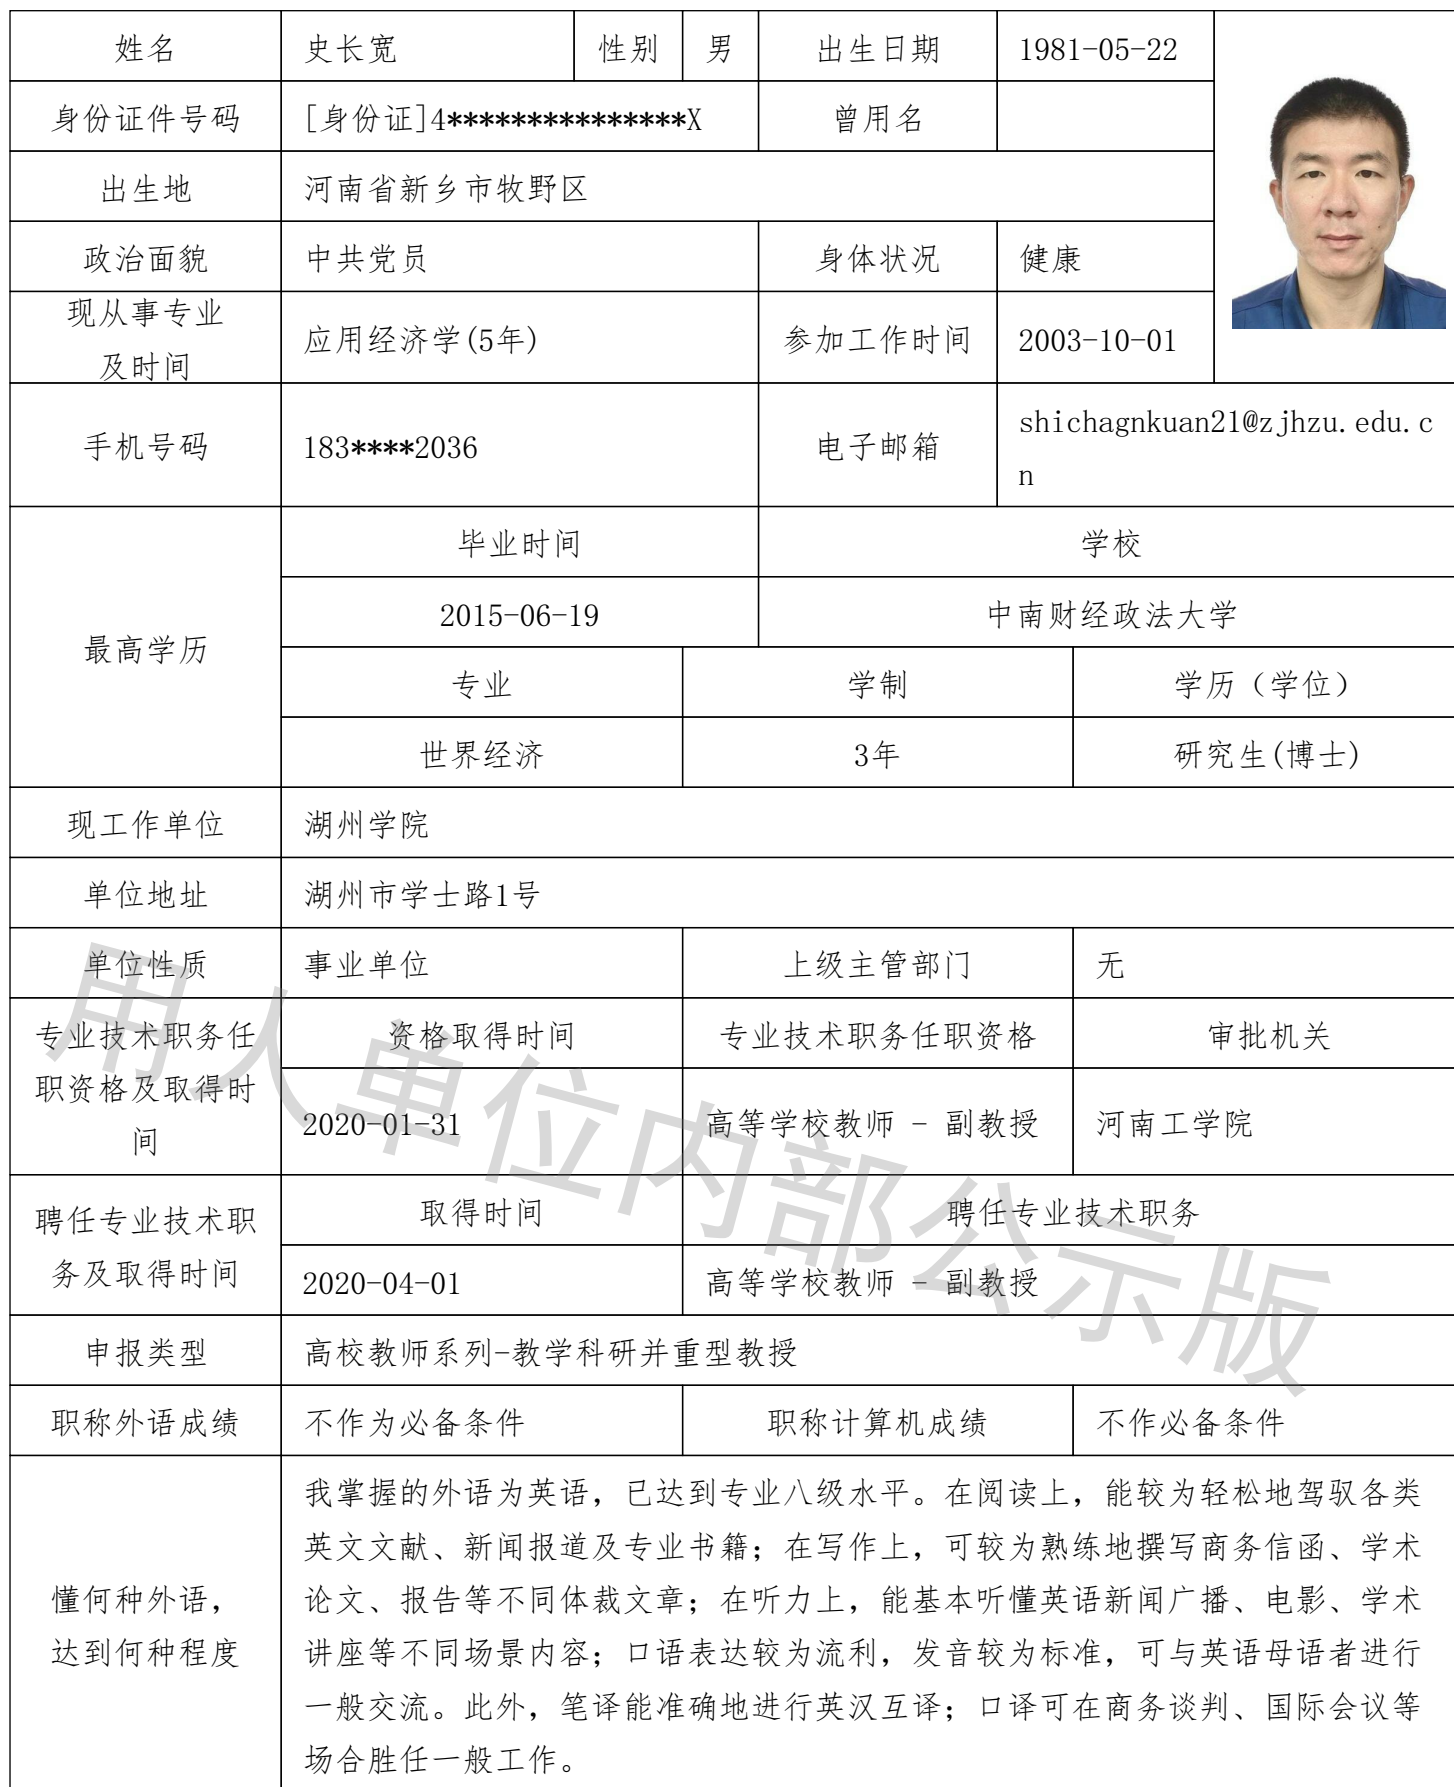 姓名 史长宽 性别 男 出生日期 1981-05-22
身份证件号码 [身份证]4***************X 曾用名
出生地 河南省新乡市牧野区
政治面貌 中共党员 身体状况 健康
现从事专业
及时间 应用经济学(5年) 参加工作时间 2003-10-01
手机号码 183****2036 电子邮箱 shichagnkuan21@zjhzu.edu.c
n
最高学历
毕业时间 学校
2015-06-19 中南财经政法大学
专业 学制 学历（学位）
世界经济 3年 研究生(博士)
现工作单位 湖州学院
单位地址 湖州市学士路1号
单位性质 事业单位 上级主管部门 无
专业技术职务任
职资格及取得时
间
资格取得时间 专业技术职务任职资格 审批机关
2020-01-31 高等学校教师 - 副教授 河南工学院
聘任专业技术职
务及取得时间
取得时间 聘任专业技术职务
2020-04-01 高等学校教师 - 副教授
申报类型 高校教师系列-教学科研并重型教授
职称外语成绩 不作为必备条件 职称计算机成绩 不作必备条件
懂何种外语，
达到何种程度
我掌握的外语为英语，已达到专业八级水平。在阅读上，能较为轻松地驾驭各类
英文文献、新闻报道及专业书籍；在写作上，可较为熟练地撰写商务信函、学术
论文、报告等不同体裁文章；在听力上，能基本听懂英语新闻广播、电影、学术
讲座等不同场景内容；口语表达较为流利，发音较为标准，可与英语母语者进行
一般交流。此外，笔译能准确地进行英汉互译；口译可在商务谈判、国际会议等
场合胜任一般工作。
用人单位内部公示版